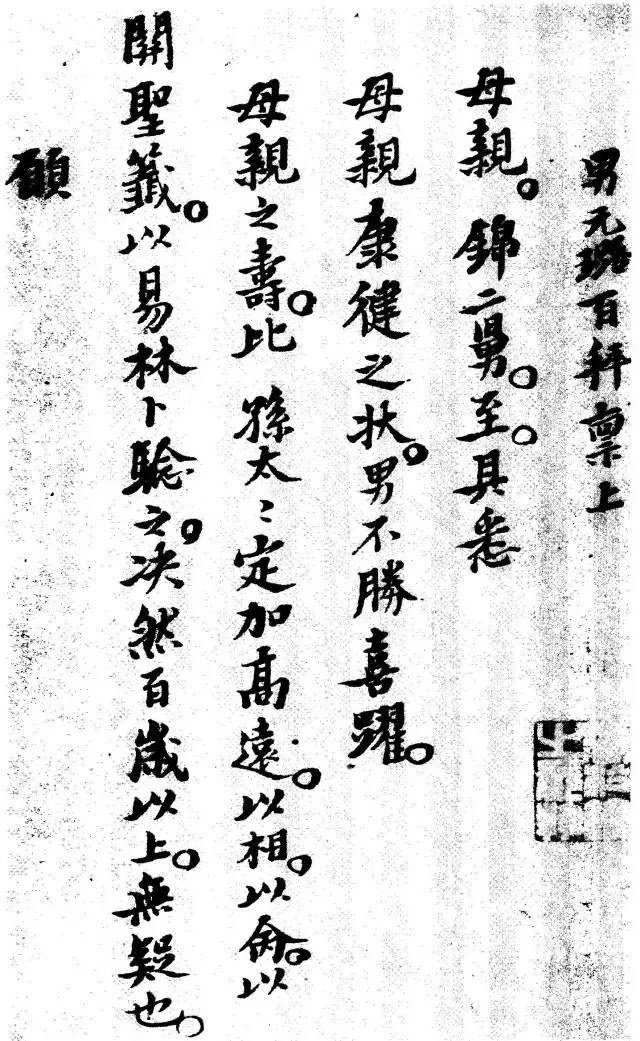 男元璐百拜禀上
母親。錦二舅。至。具悉
母親康健之狀。男不勝喜躍。
母親之壽。比 孫太〻定加高遠。以相。以命。以
關聖籤。以易林卜驗之。决然百歲以上。無疑也。
願